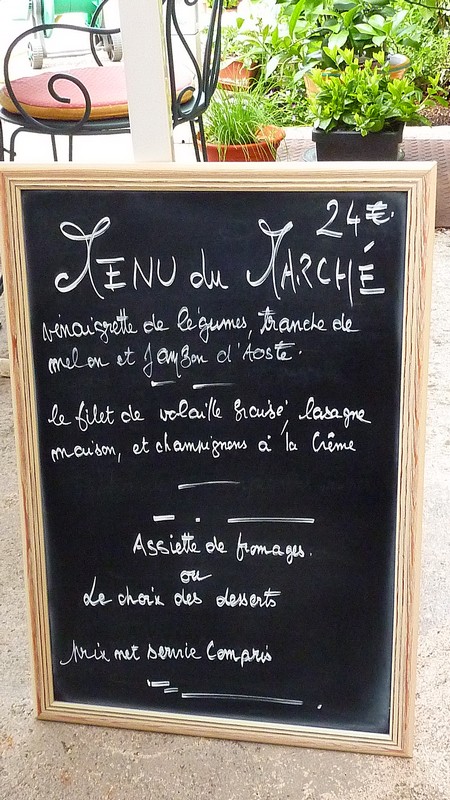 24€.
MENU du MARCHÉ
vinaigrette de légumes, tranche de
melon et Jambon d'Aoste.
le filet de volaille braisé, lasagne
maison, et champignons à la Crème
Assiette de fromages.
ou
Le choix des desserts
prix net service Compris